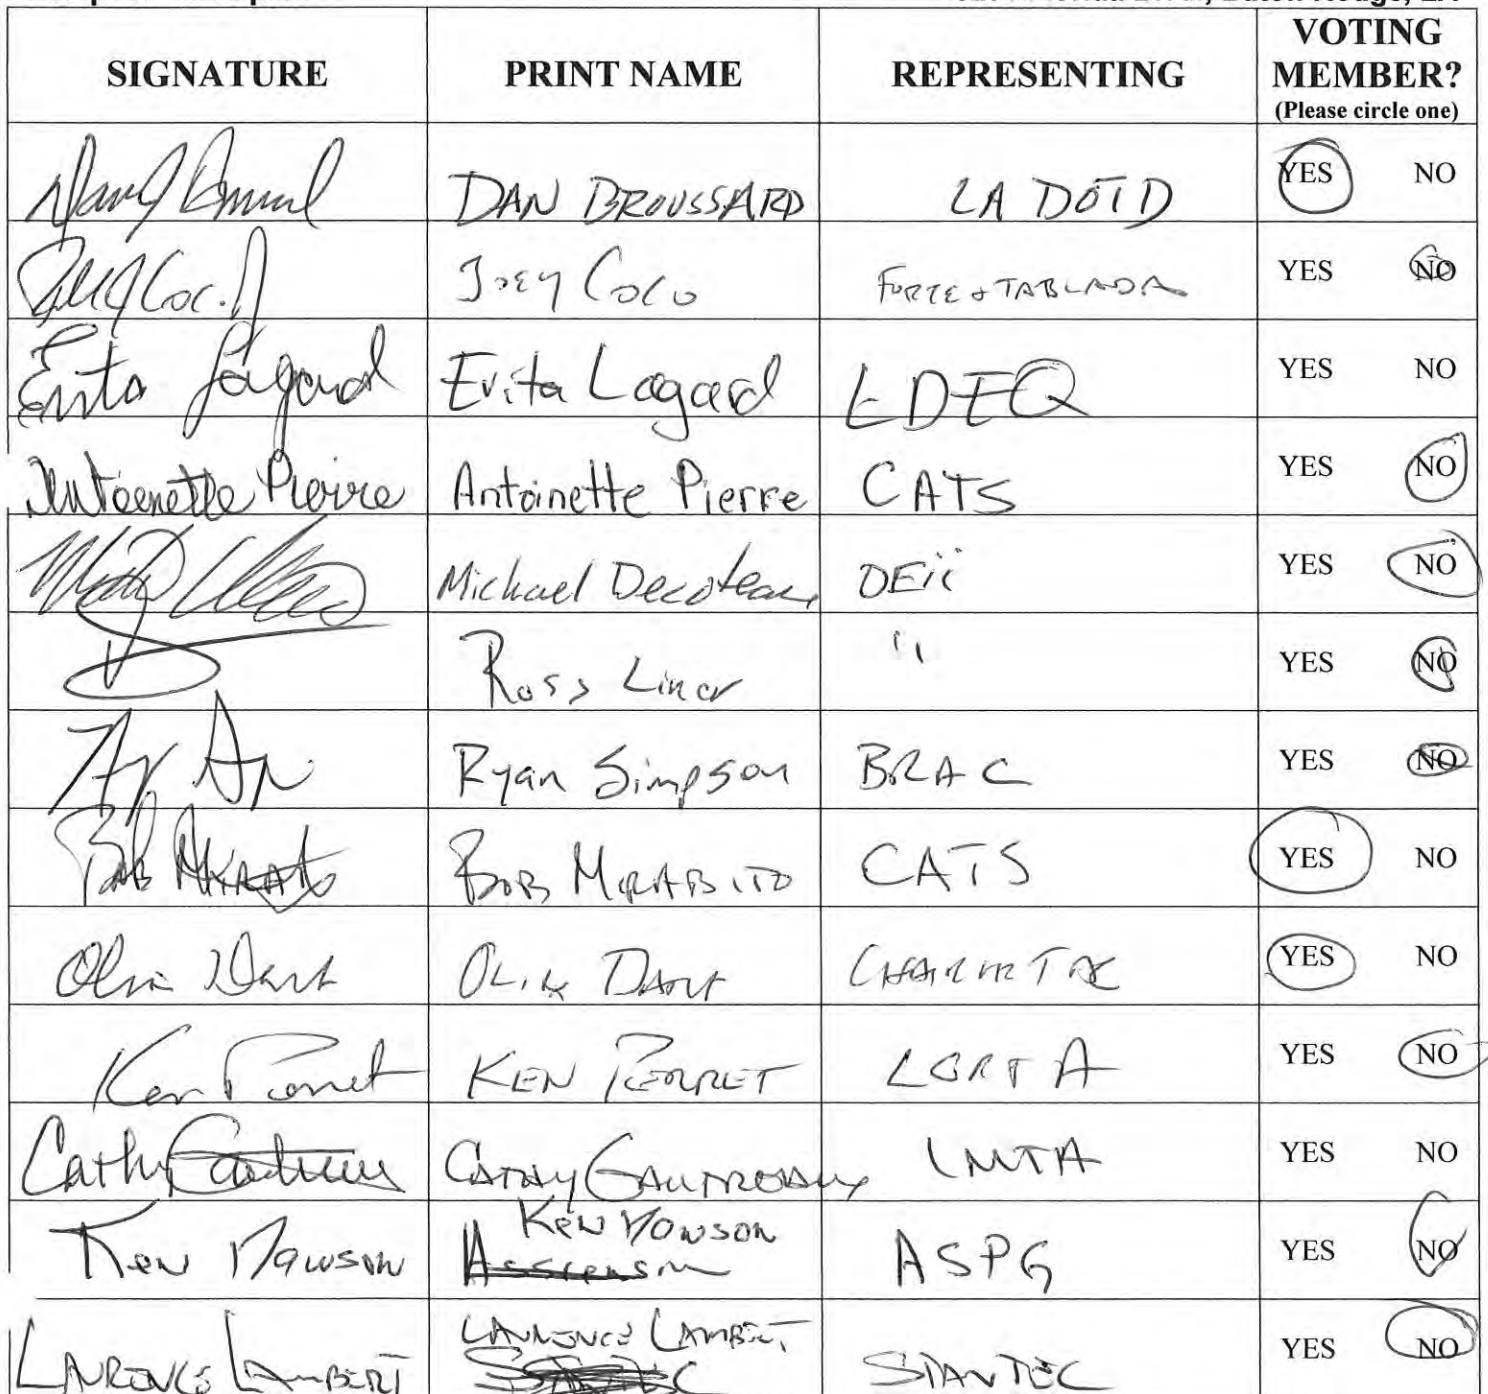 SIGNATURE PRINT NAME REPRESENTING VOTING MEMBER? (Please circle one)
DAN BROUSSARD LA DOTD YES NO
Joey Coco FORTE & TABLADA YES NO
Evita Lagard Evita Lagard LDEQ YES NO
Antoinette Pierre Antoinette Pierre CATS YES NO
Michael Decoteau DEii YES NO
Ross Liner " YES NO
Ryan Simpson BRAC YES NO
Bob Mirabito BOB MIRABITO CATS YES NO
Olin Dart OLIN DART YES NO
Ken Perret KEN PERRET LGRTA YES NO
Cathy Gautreaux CATHY GAUTREAUX LMTA YES NO
Ken Dawson Ken Dawson ASPG YES NO
LAURENCE LAMBERT LAURENCE LAMBERT STANTEC YES NO